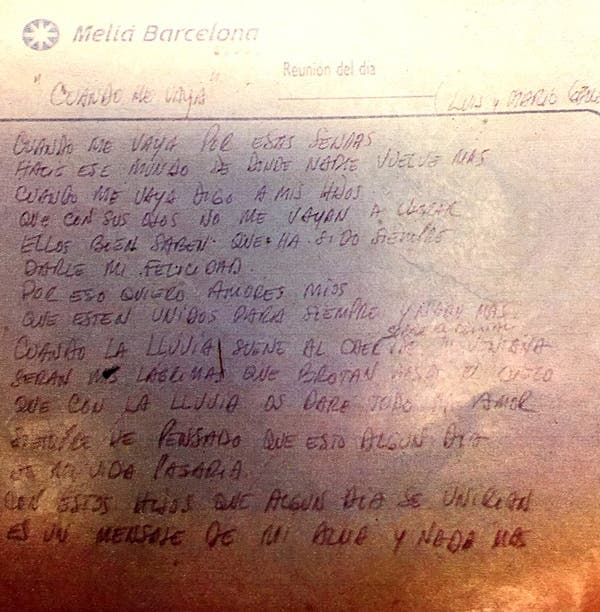 Meliá Barcelona
Reunion del dia
"CUANDO ME VAYA"
LUIS Y MARIO
CUANDO ME VAYA POR ESTAS SENDAS
HACIA ESE MUNDO DE DONDE NADIE VUELVE MAS
CUANDO ME VAYA DIGO A MIS HIJOS
QUE CON SUS OJOS NO ME VAYAN A LLORAR
ELLOS BIEN SABEN QUE HA SIDO SIEMPRE
DARLE MI FELICIDAD.
POR ESO QUIERO AMORES MIOS
QUE ESTEN UNIDOS PARA SIEMPRE Y NADA MAS.
SOBRE EL CRISTAL
CUANDO LA LLUVIA SUENE AL CAER VENTANA
SERAN MIS LAGRIMAS QUE BROTAN DESDE EL CIELO
QUE CON LA LLUVIA OS DARE TODO MI AMOR
SIEMPRE HE PENSADO QUE ESTO ALGUN DIA
EN MI VIDA PASARIA.
CON ESTOS HIJOS QUE ALGUN DIA SE UNIRIAN
ES UN MENSAJE DE MI ALMA Y NADA MAS